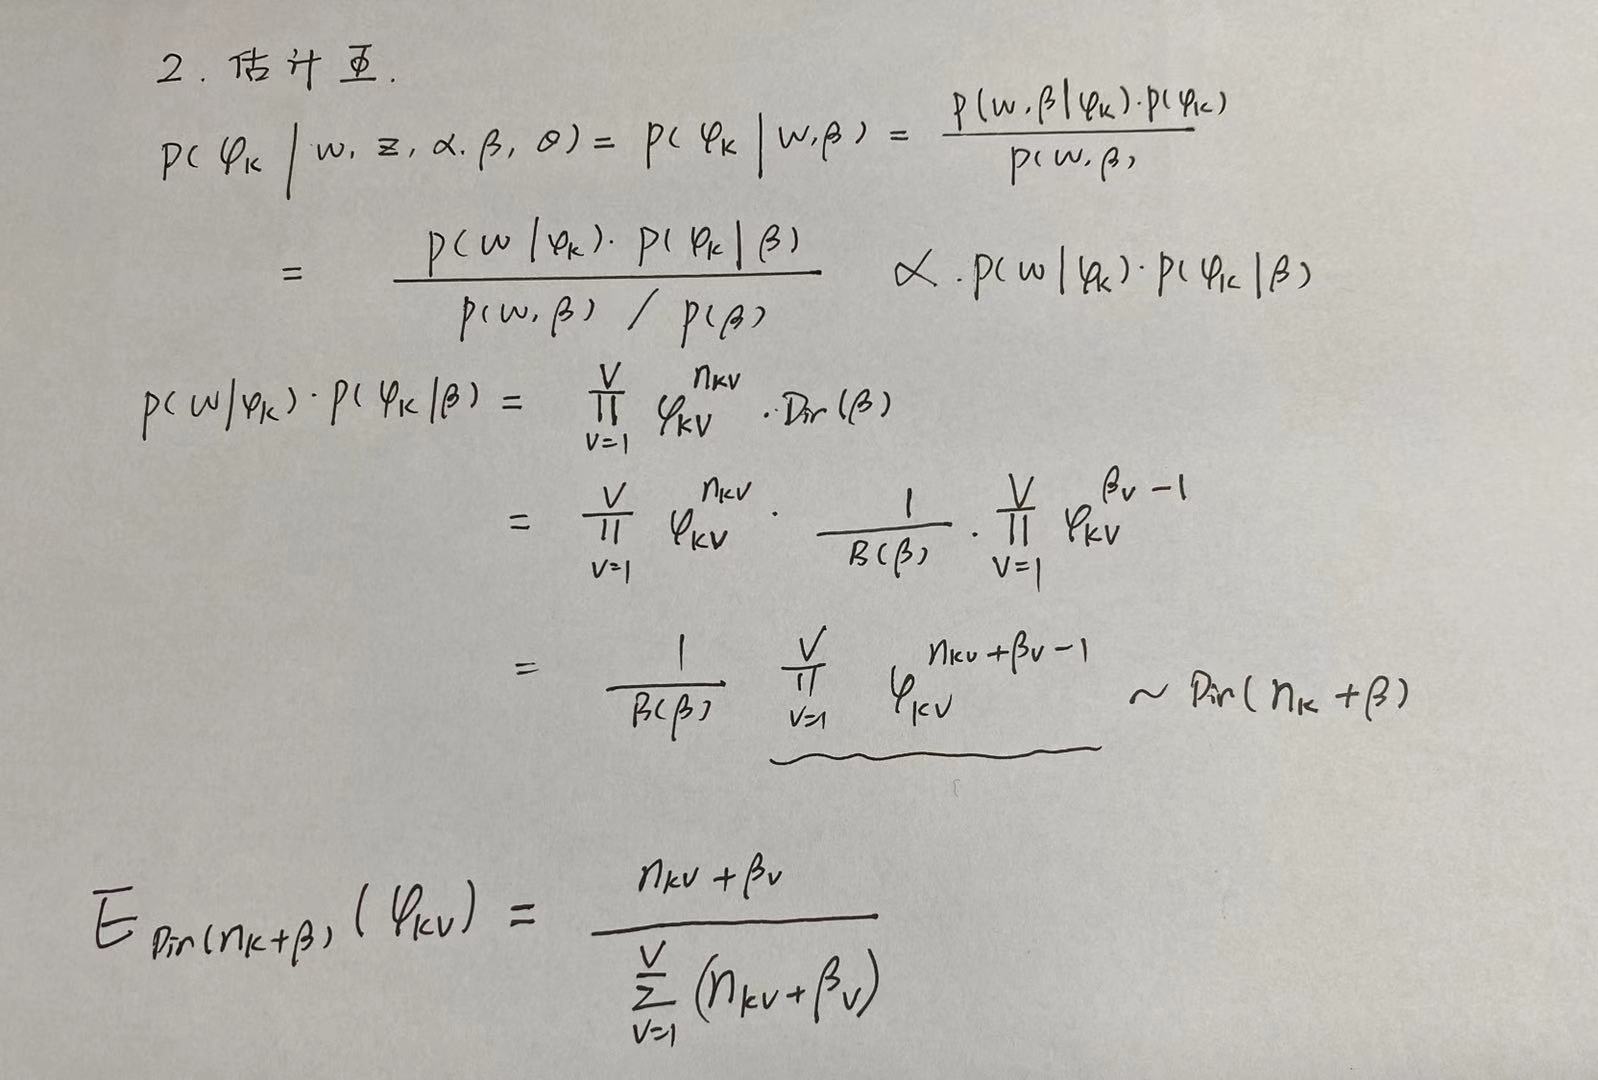 2. 估计 Φ.
p(φ_k | w, z, α, β, θ) = p(φ_k | w, β) = p(w, β | φ_k) · p(φ_k) / p(w, β)
= p(w | φ_k) · p(φ_k | β) / (p(w, β) / p(β)) ∝ p(w | φ_k) · p(φ_k | β)
p(w | φ_k) · p(φ_k | β) = ∏_{v=1}^{V} φ_{kv}^{n_{kv}} · Dir(β)
= ∏_{v=1}^{V} φ_{kv}^{n_{kv}} · 1 / B(β) · ∏_{v=1}^{V} φ_{kv}^{β_v - 1}
= 1 / B(β) ∏_{v=1}^{V} φ_{kv}^{n_{kv} + β_v - 1} ~ Dir(n_k + β)
E_{Dir(n_k + β)} (φ_{kv}) = (n_{kv} + β_v) / ∑_{v=1}^{V} (n_{kv} + β_v)